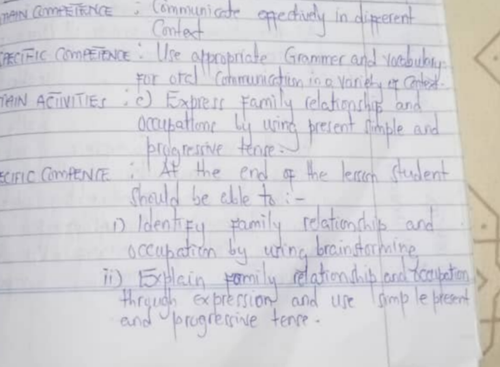 MAIN COMPETENCE : Communicate effectively in different
Context
SPECIFIC COMPETENCE : Use appropriate Grammer and vocabulary
For oral Communication in a variety of Context.
MAIN ACTIVITIES : c) Express Family relationship and
occupations by using present simple and
progressive tense.
ECIFIC COMPENCE : At the end of the lesson student
should be able to :-
i) Identify Family relationship and
occupation by using brainstorming
ii) Explain Family relationship and occupation
through expression and use simple present
and progressive tense.